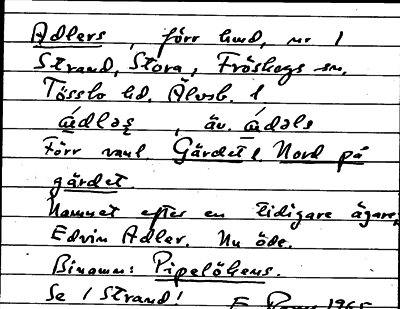 Adlers, förr hmd, nr 1
Strand, Stora, Fröskogs sn.
Tössbo hd. Älvsb. l
ádləʂ, äv. ádəls
Förr vanl. Gärdet l Nord på
gärdet.
Namnet efter en tidigare ägare,
Edvin Adler. Nu öde.
Binamn: Pipelökens.
Se 1 Strand!
1965